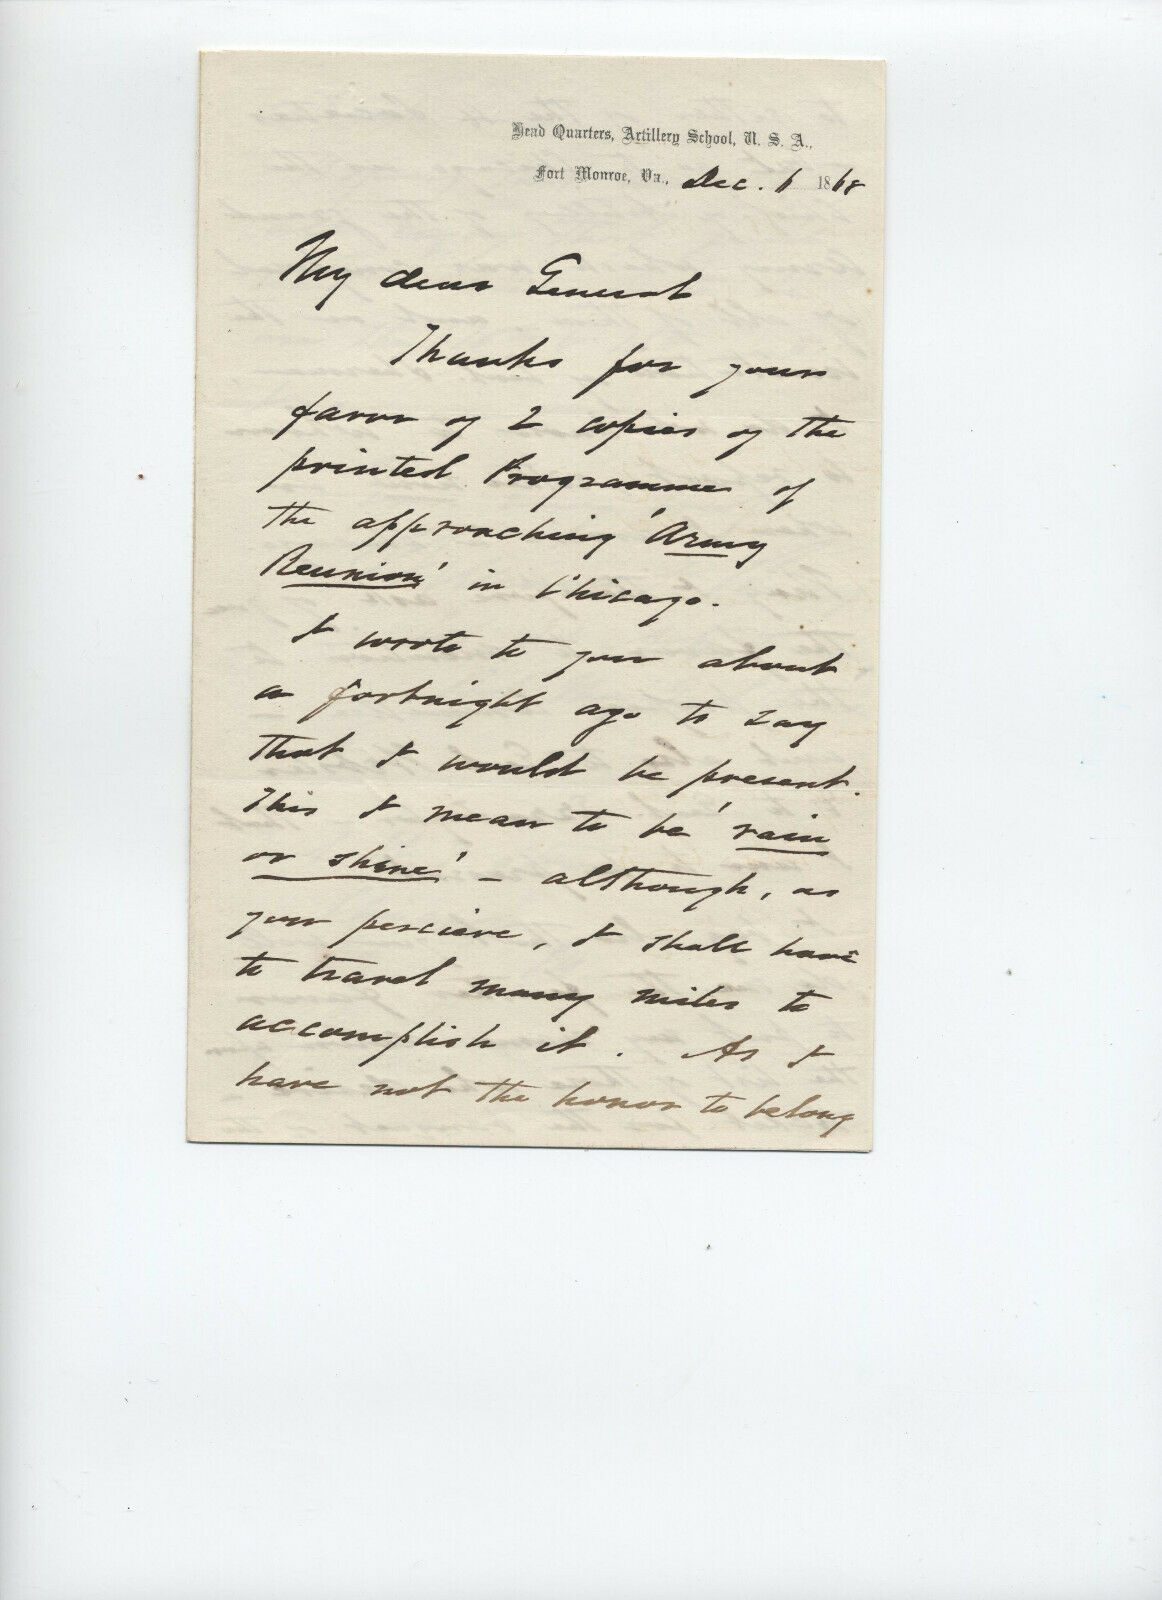 Head Quarters, Artillery School, U. S. A.,
Fort Monroe, Va., Dec. 6 1868
My dear General
Thanks for your
favor of 2 copies of the
printed Programme of
the approaching 'Army
Reunion' in Chicago.
I wrote to you about
a fortnight ago to say
that I would be present.
This I mean to be 'rain
or shine' – although, as
you percieve, I shall have
to travel many miles to
accomplish it. As I
have not the honor to belong